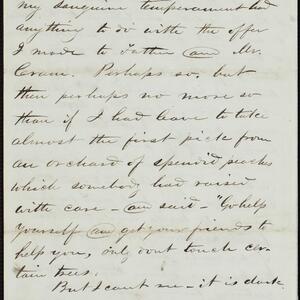 my sanguine temperament had
anything to do with the offer
I made to Father and Mr.
Cram. Perhaps so, but
then perhaps no more so
than if I had leave to take
almost the first pick from
an orchard of splendid peaches
which somebody had raised
with care - and said - "Go help
yourself and get your friends to
help you, only dont touch cer-
tain trees.
But I cant see - it is dark,